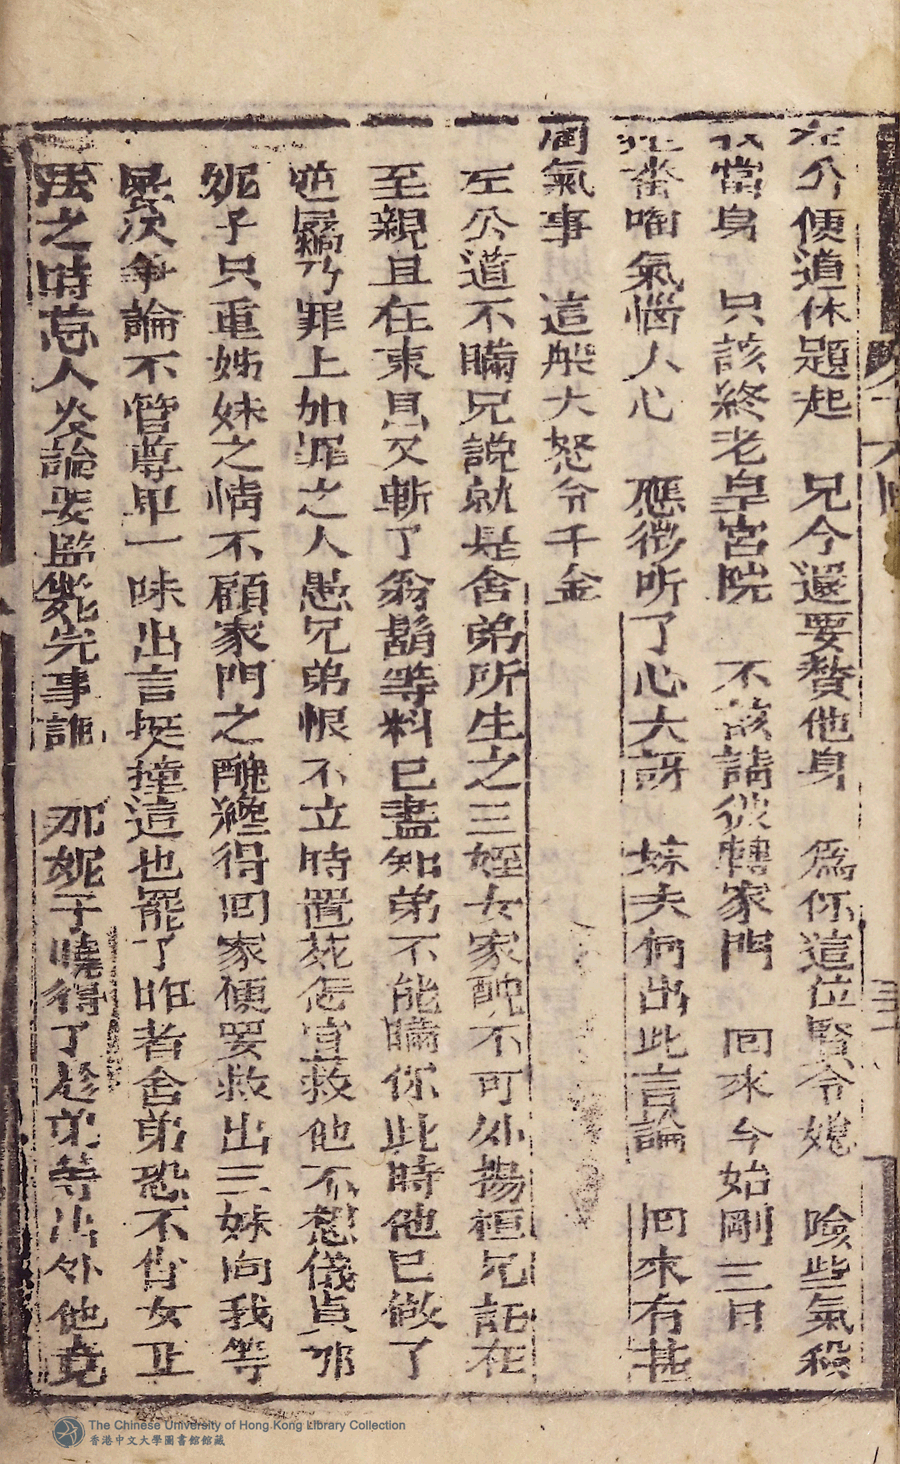 左公便道休題起　兄今還要贅他身　爲你這位賢令媳　險些氣殺
當身　只該終老皇宮院　不該請彼轉家門　回來今始剛三日
番啕氣惱人心　應徴听了心大訝　妹夫何出此言論　回來有甚
氣事　這般大怒令千金
左公道不瞞兄說就是舍弟所生之三姪女家醜不可外揚桓兄誼在
至親且在東昌又斬了翁鬍等料已盡知弟不能瞞你此時他已做了
罪上加罪之人愚兄弟恨不立時置死怎宜救他不想儀貞那
妮子只重姊妹之情不顧家門之醜纔得回家便要救出三妹向我等
次爭論不管尊卑一味出言挺撞這也罷了昨者舍弟恐不肖女正
法之時惹人炎論要監斃完事誰　那妮子曉得了趁弟等出外他竟
The Chinese University of Hong Kong Library Collection
香港中文大學圖書館館藏